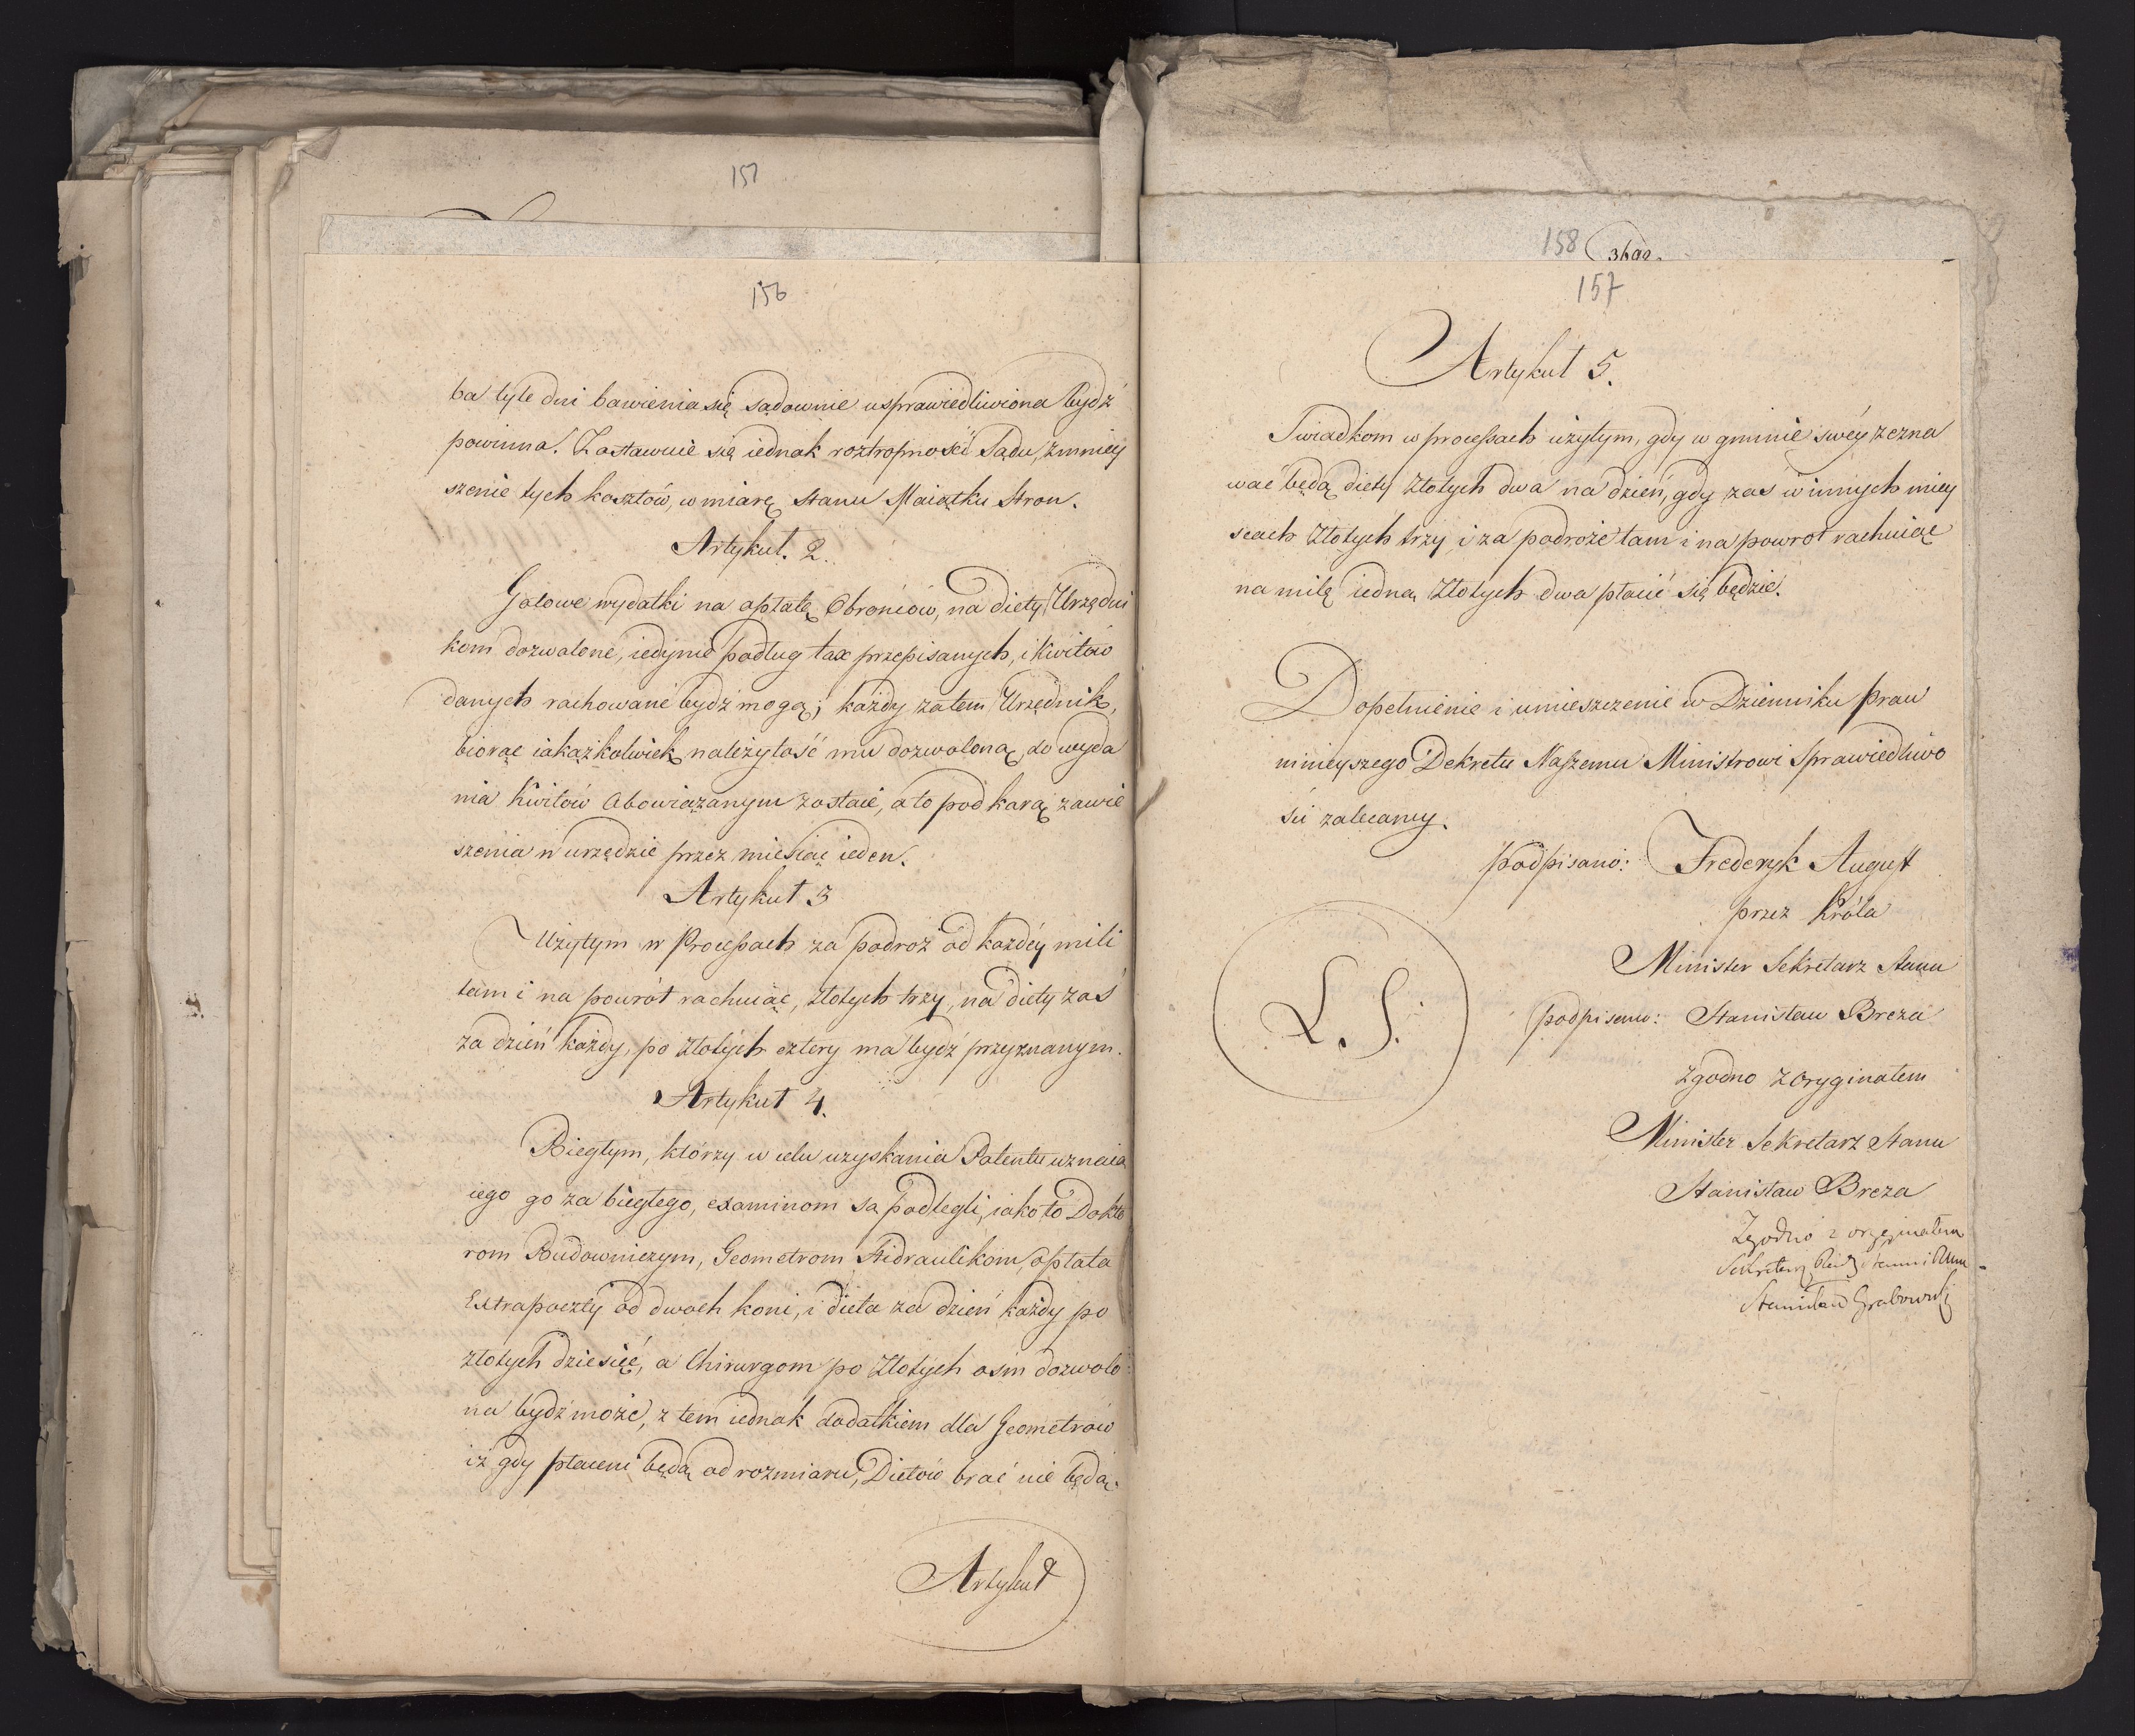 157
156
ba tyle dni bawienia się sądownie usprawiedliwiona bydź
powinna. Zostawuie się iednak roztropności Sądu, zmniey
szenie tych kosztów, w miarę Stanu Maiątku Stron.
Artykuł. 2.
Gotowe wydatki na opłatę Obrońców, na diety Urzędni
kom dozwolone, iedynie podług tax przepisanych, i kwitów
danych rachowane bydź mogą; każdy zatem Urzędnik,
biorąc iakążkolwiek należytość mu dozwoloną, do wyda
nia kwitów obowiązanym zostaie, a to pod karą zawie
szenia w urzędzie przez miesiąc ieden.
Artykuł 3
Użytym w Processach za podroż od każdéy mili
tam i na powrót rachuiąc, złotych trzy, na diety zaś
za dzień każdy, po złotych cztery ma bydź przyznanym.
Artykuł 4.
Biegłym, którzy w celu uzyskania Patentu uznaią
iego go za biegłego, examinom są podlegli, iako to Dokto
rom Budowniczym, Geometrom Hidraulikom, opłata
Extrapoczty od dwoch koni, i dieta za dzień każdy po
złotych dziesięć, a Chirurgom po złotych osm dozwolo
na bydź może, z tem iednak dodatkiem dla Geometrów
iż gdy płaceni będą od rozmiaru, Dietów brać nie będą.
Artykuł
158
157
Artykuł 5.
Swiadkom w processach użytym, gdy w gminie swéy zezna
wać będą diety złotych dwa na dzień, gdy zas w innych miey
scach złotych trzy, i za podroże tam i na powrot rachuiąc
na milę iedną złotych dwa płacić się będzie.
Dopełnienie i umieszczenie w Dzienniku praw
ninieyszego Dekretu Naszemu Ministrowi Sprawiedliwo
ści zalecamy.
podpisano: Frederyk August
przez Króla
Minister Sekretarz Stanu
L. S.
podpisano: Stanisław Breza
zgodno z oryginałem
Minister Sekretarz Stanu
Stanisław Breza
Zgodno z oryginałem
Sekretarz Rady Stanu i Min
Stanisław Grabowski